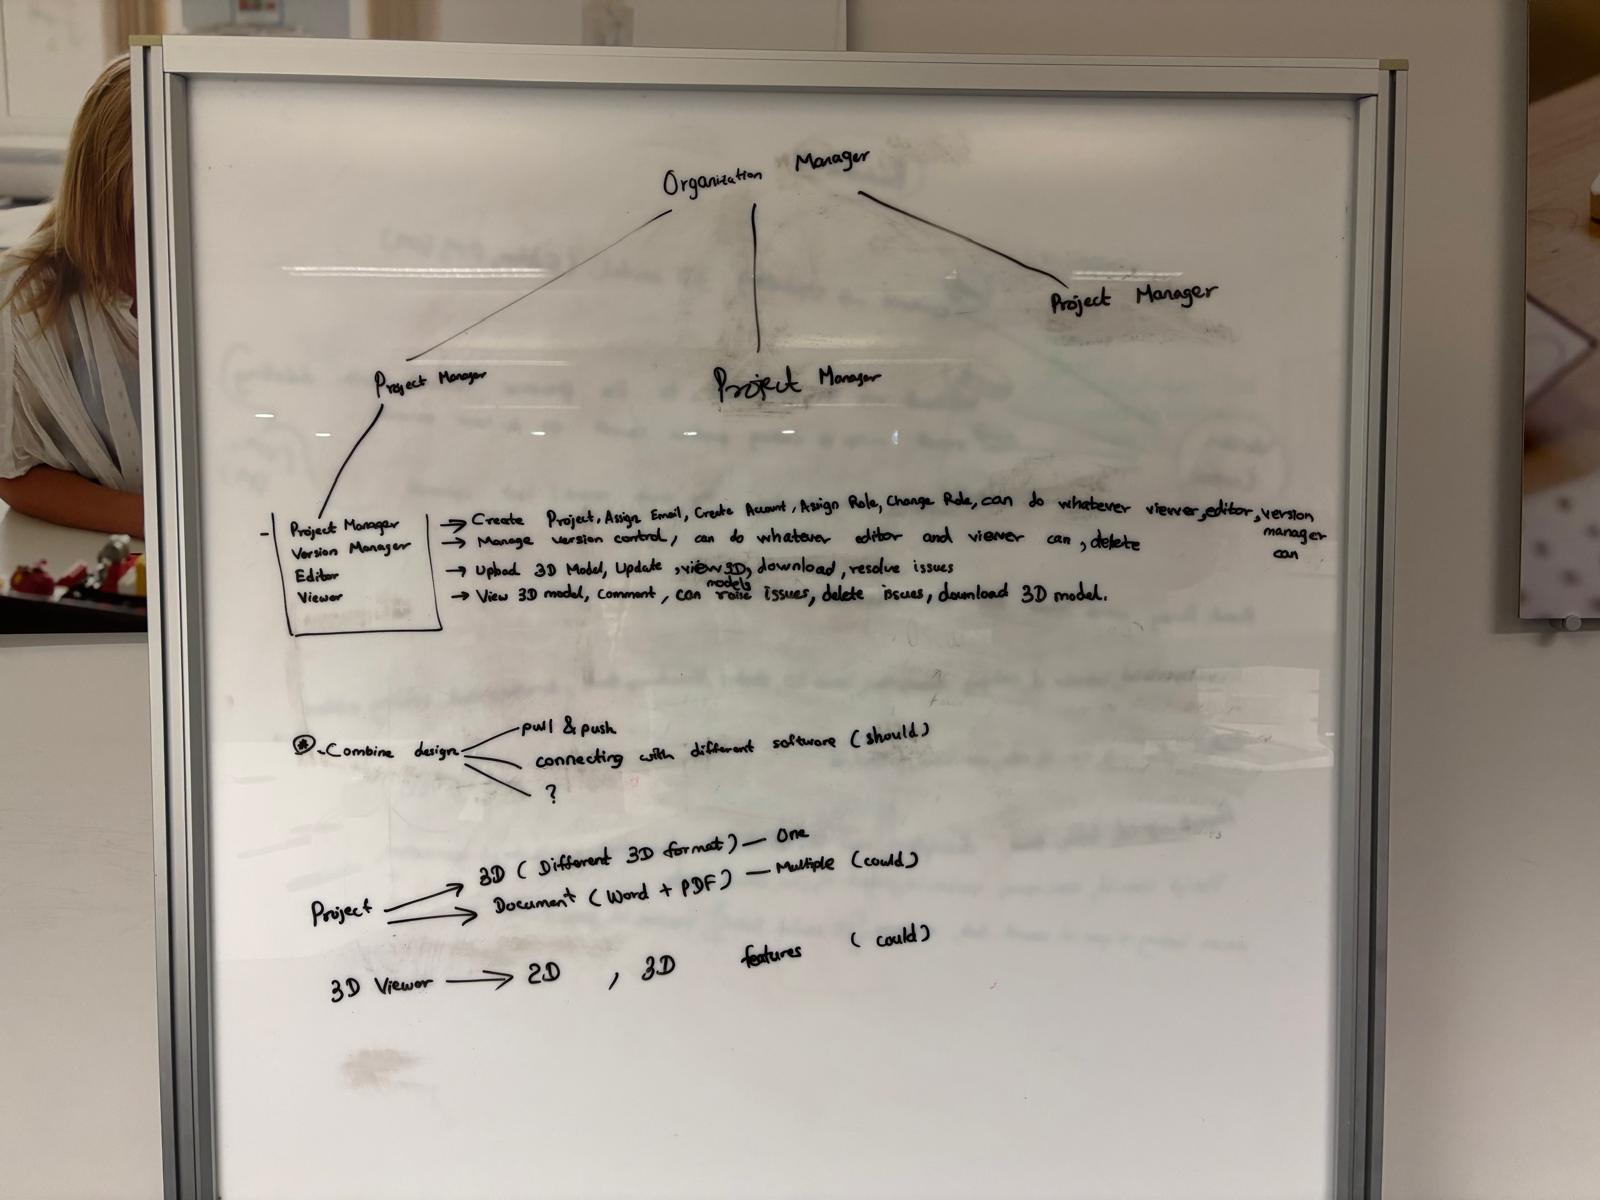 Organization Manager
Project Manager
Project Manager
Project Manager
- Project Manager → Create Project, Assign Email, Create Account, Assign Role, Change Role, can do whatever viewer, editor, version manager can
Version Manager → Manage version control, can do whatever editor and viewer can, delete
Editor → Upload 3D Model, Update, view 3D models, download, resolve issues
Viewer → View 3D model, Comment, can raise issues, delete issues, download 3D model.
pull & push
* - Combine design
connecting with different software (should)
?
3D (Different 3D format) — One
Project
Document (Word + PDF) — Multiple (could)
3D Viewer → 2D , 3D features (could)